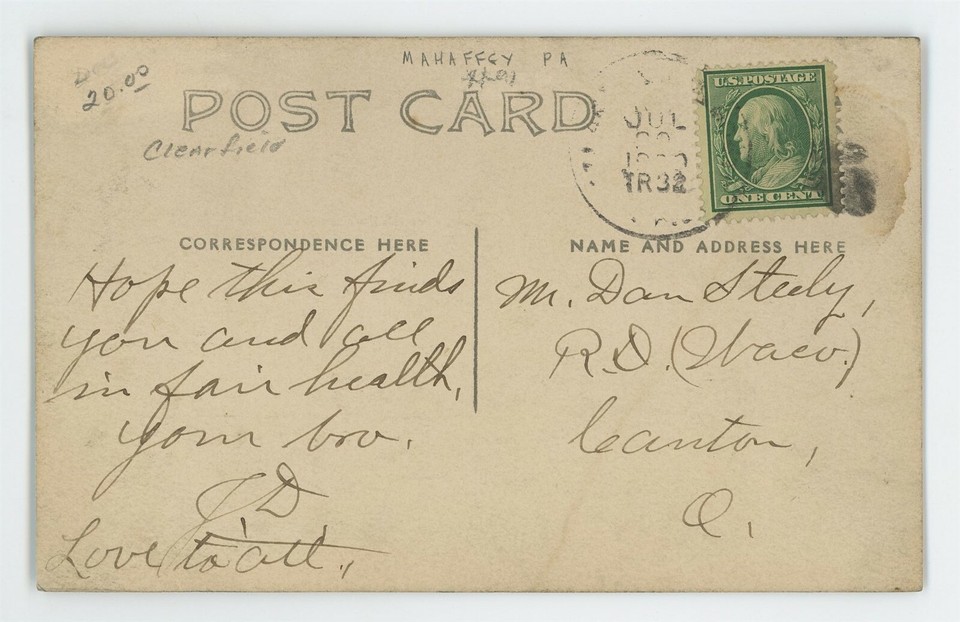 MAHAFFEY PA
20.00
POST CARD
Clearfield
JUL
TR32
U.S. POSTAGE
ONE CENT
CORRESPONDENCE HERE
Hope this finds
you and all
in fair health,
your bro.
J.D.
Love to all.,
NAME AND ADDRESS HERE
Mr. Dan Steely,
R.D. (Waco.)
Canton,
O.